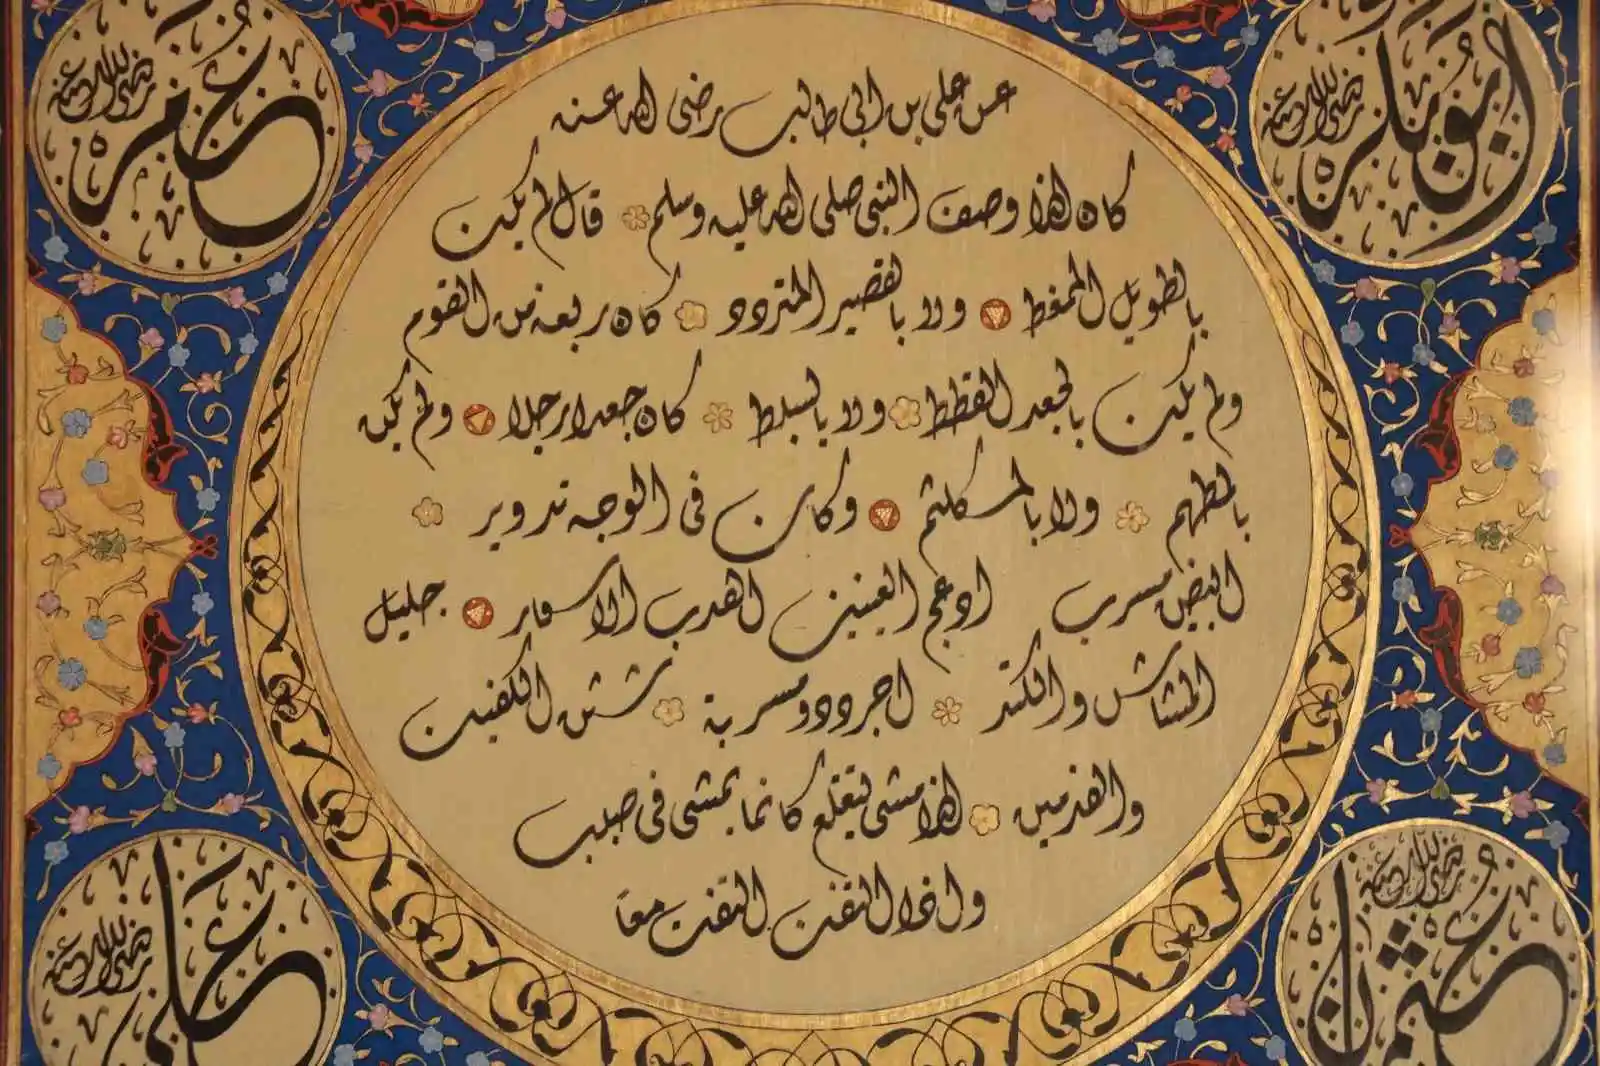 ابو بكر رضي الله عنه
عمر رضي الله عنه
عن علي بن ابي طالب رضى الله عنه
كان اذا وصف النبي صلى الله عليه وسلم قال لم يكن
بالطويل الممغط ولا بالقصير المتردد كان ربعة من القوم
ولم يكن بالجعد القطط ولا بالسبط كان جعدا رجلا ولم يكن
بالمطهم ولا بالمكلثم وكان في الوجه تدوير
ابيض مشرب ادعج العينين اهدب الاشفار جليل
المشاش والكتد اجرد ذو مسربة شثن الكفين
والقدمين اذا مشى يتقلع كانما يمشى فى صبب
واذا التفت التفت معا
عثمان رضي الله عنه
علي رضي الله عنه